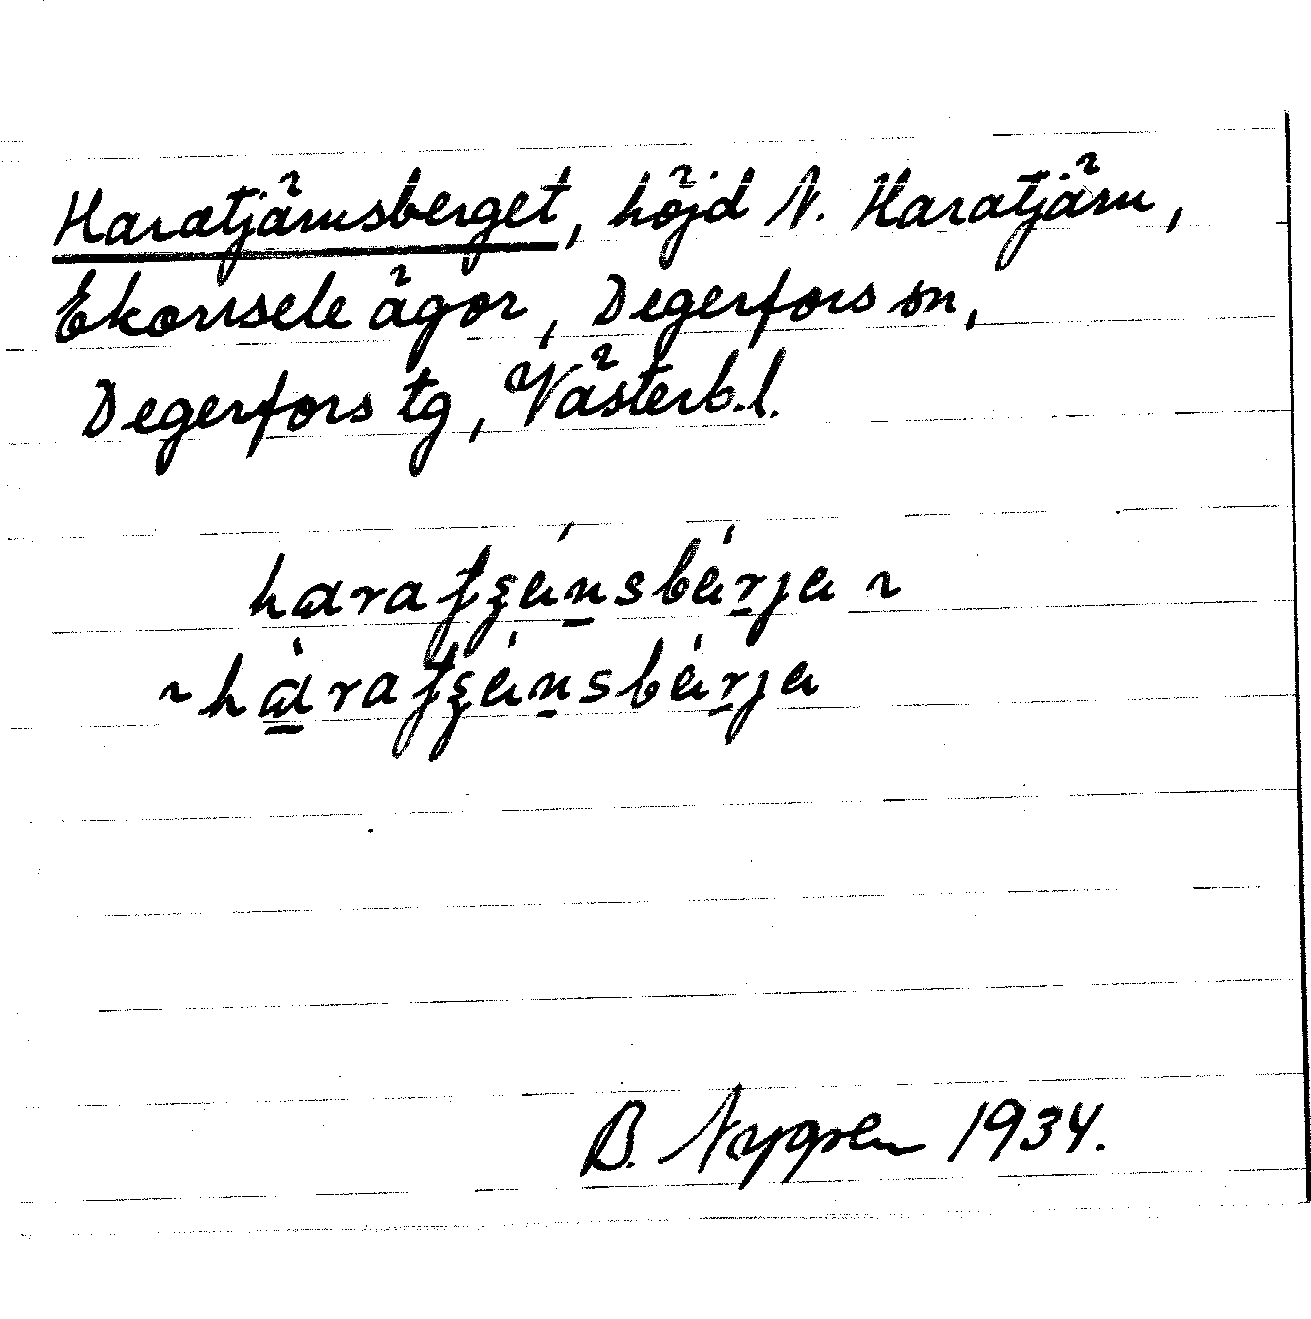 Haratjärnsberget, höjd N. Haratjärn,
Ekorrsele ägor, Degerfors sn,
Degerfors tg, Västerb.l.
B. Nygren 1934.